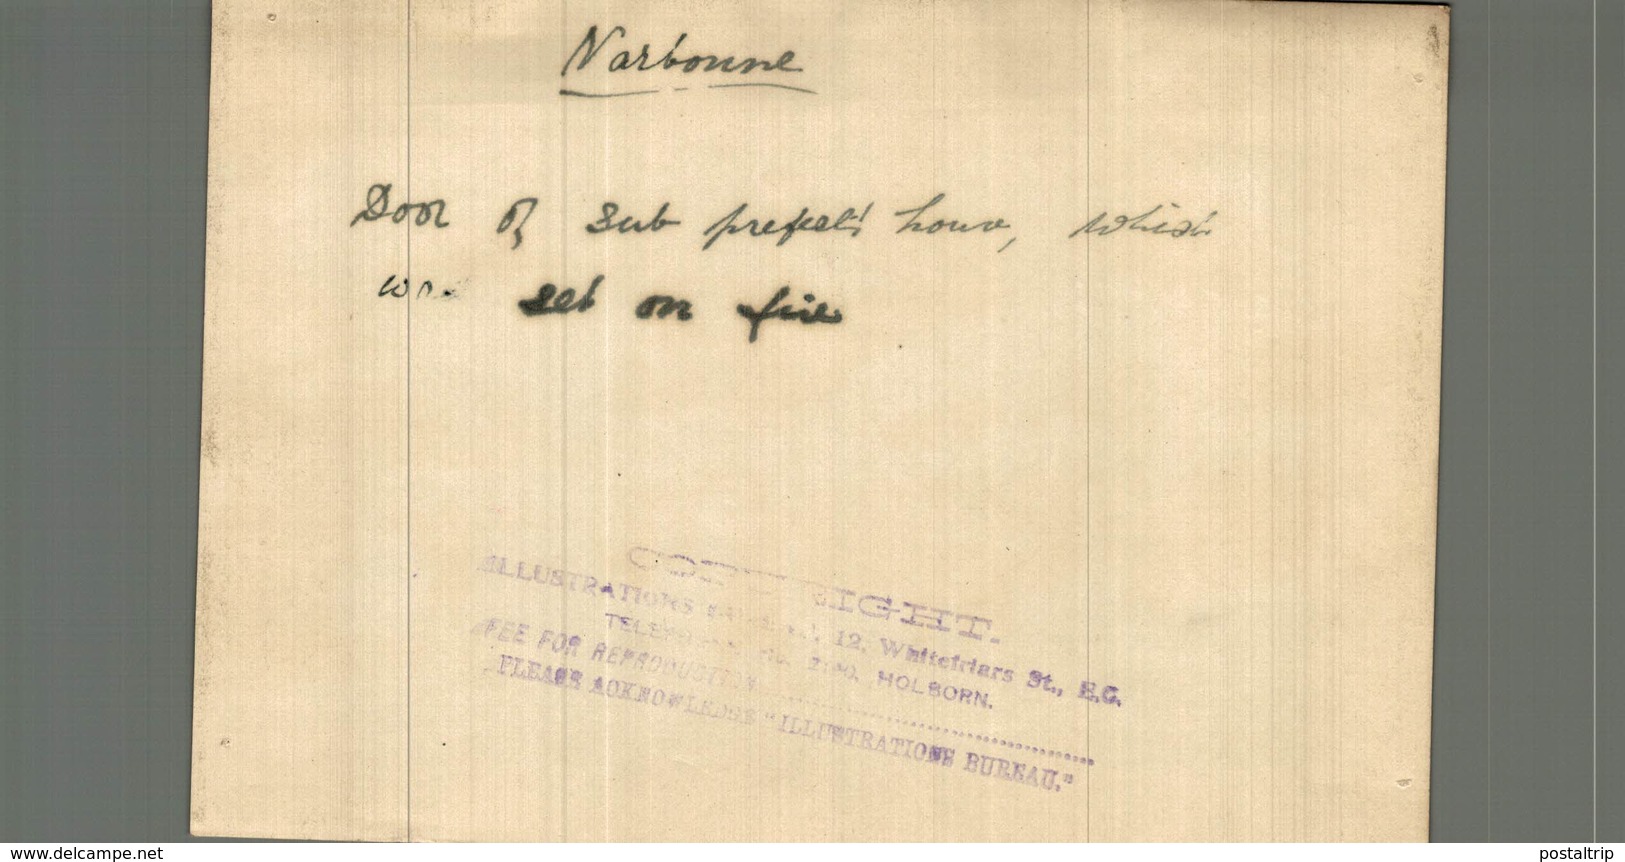 Narbonne
Door of sub prefect's house, which
was set on fire
COPYRIGHT.
ILLUSTRATIONS 12, Whitefriars St., E.C.
TELEPHONE No. HOLBORN.
FEE FOR REPRODUCTION
PLEASE ACKNOWLEDGE "ILLUSTRATIONS BUREAU."
www.delcampe.net
postaltrip